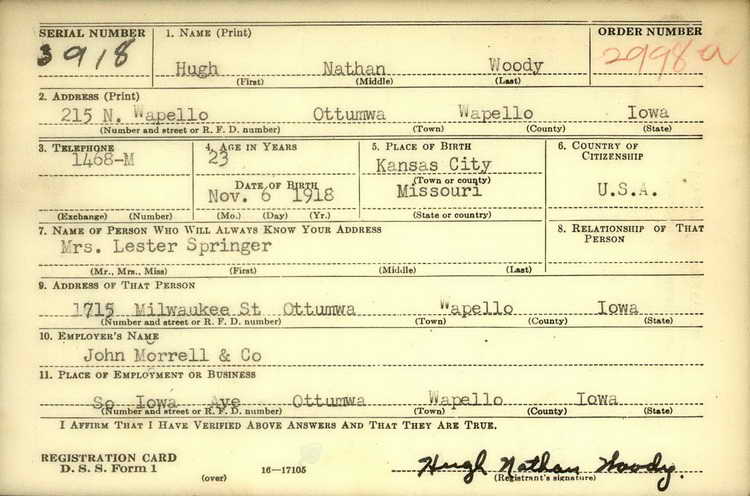 SERIAL NUMBER 1. NAME (Print) ORDER NUMBER
3918 Hugh Nathan Woody 2998a
(First) (Middle) (Last)
2. ADDRESS (Print)
215 N. Wapello Ottumwa Wapello Iowa
(Number and street or R. F. D. number) (Town) (County) (State)
3. TELEPHONE 4. AGE IN YEARS 5. PLACE OF BIRTH 6. COUNTRY OF CITIZENSHIP
1468-M 23 Kansas City
(Town or county)
DATE OF BIRTH Missouri U.S.A.
Nov. 6 1918
(Exchange) (Number) (Mo.) (Day) (Yr.) (State or country)
7. NAME OF PERSON WHO WILL ALWAYS KNOW YOUR ADDRESS 8. RELATIONSHIP OF THAT PERSON
Mrs. Lester Springer
(Mr., Mrs., Miss) (First) (Middle) (Last)
9. ADDRESS OF THAT PERSON
1715 Milwaukee St Ottumwa Wapello Iowa
(Number and street or R. F. D. number) (Town) (County) (State)
10. EMPLOYER'S NAME
John Morrell & Co
11. PLACE OF EMPLOYMENT OR BUSINESS
So Iowa Ave Ottumwa Wapello Iowa
(Number and street or R. F. D. number) (Town) (County) (State)
I AFFIRM THAT I HAVE VERIFIED ABOVE ANSWERS AND THAT THEY ARE TRUE.
REGISTRATION CARD
D. S. S. Form 1 (over) 16—17105 Hugh Nathan Woody.
(Registrant's signature)